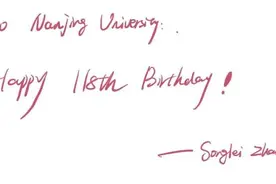 o Nanjing University:
Happy 118th Birthday!
— Songlei Zha